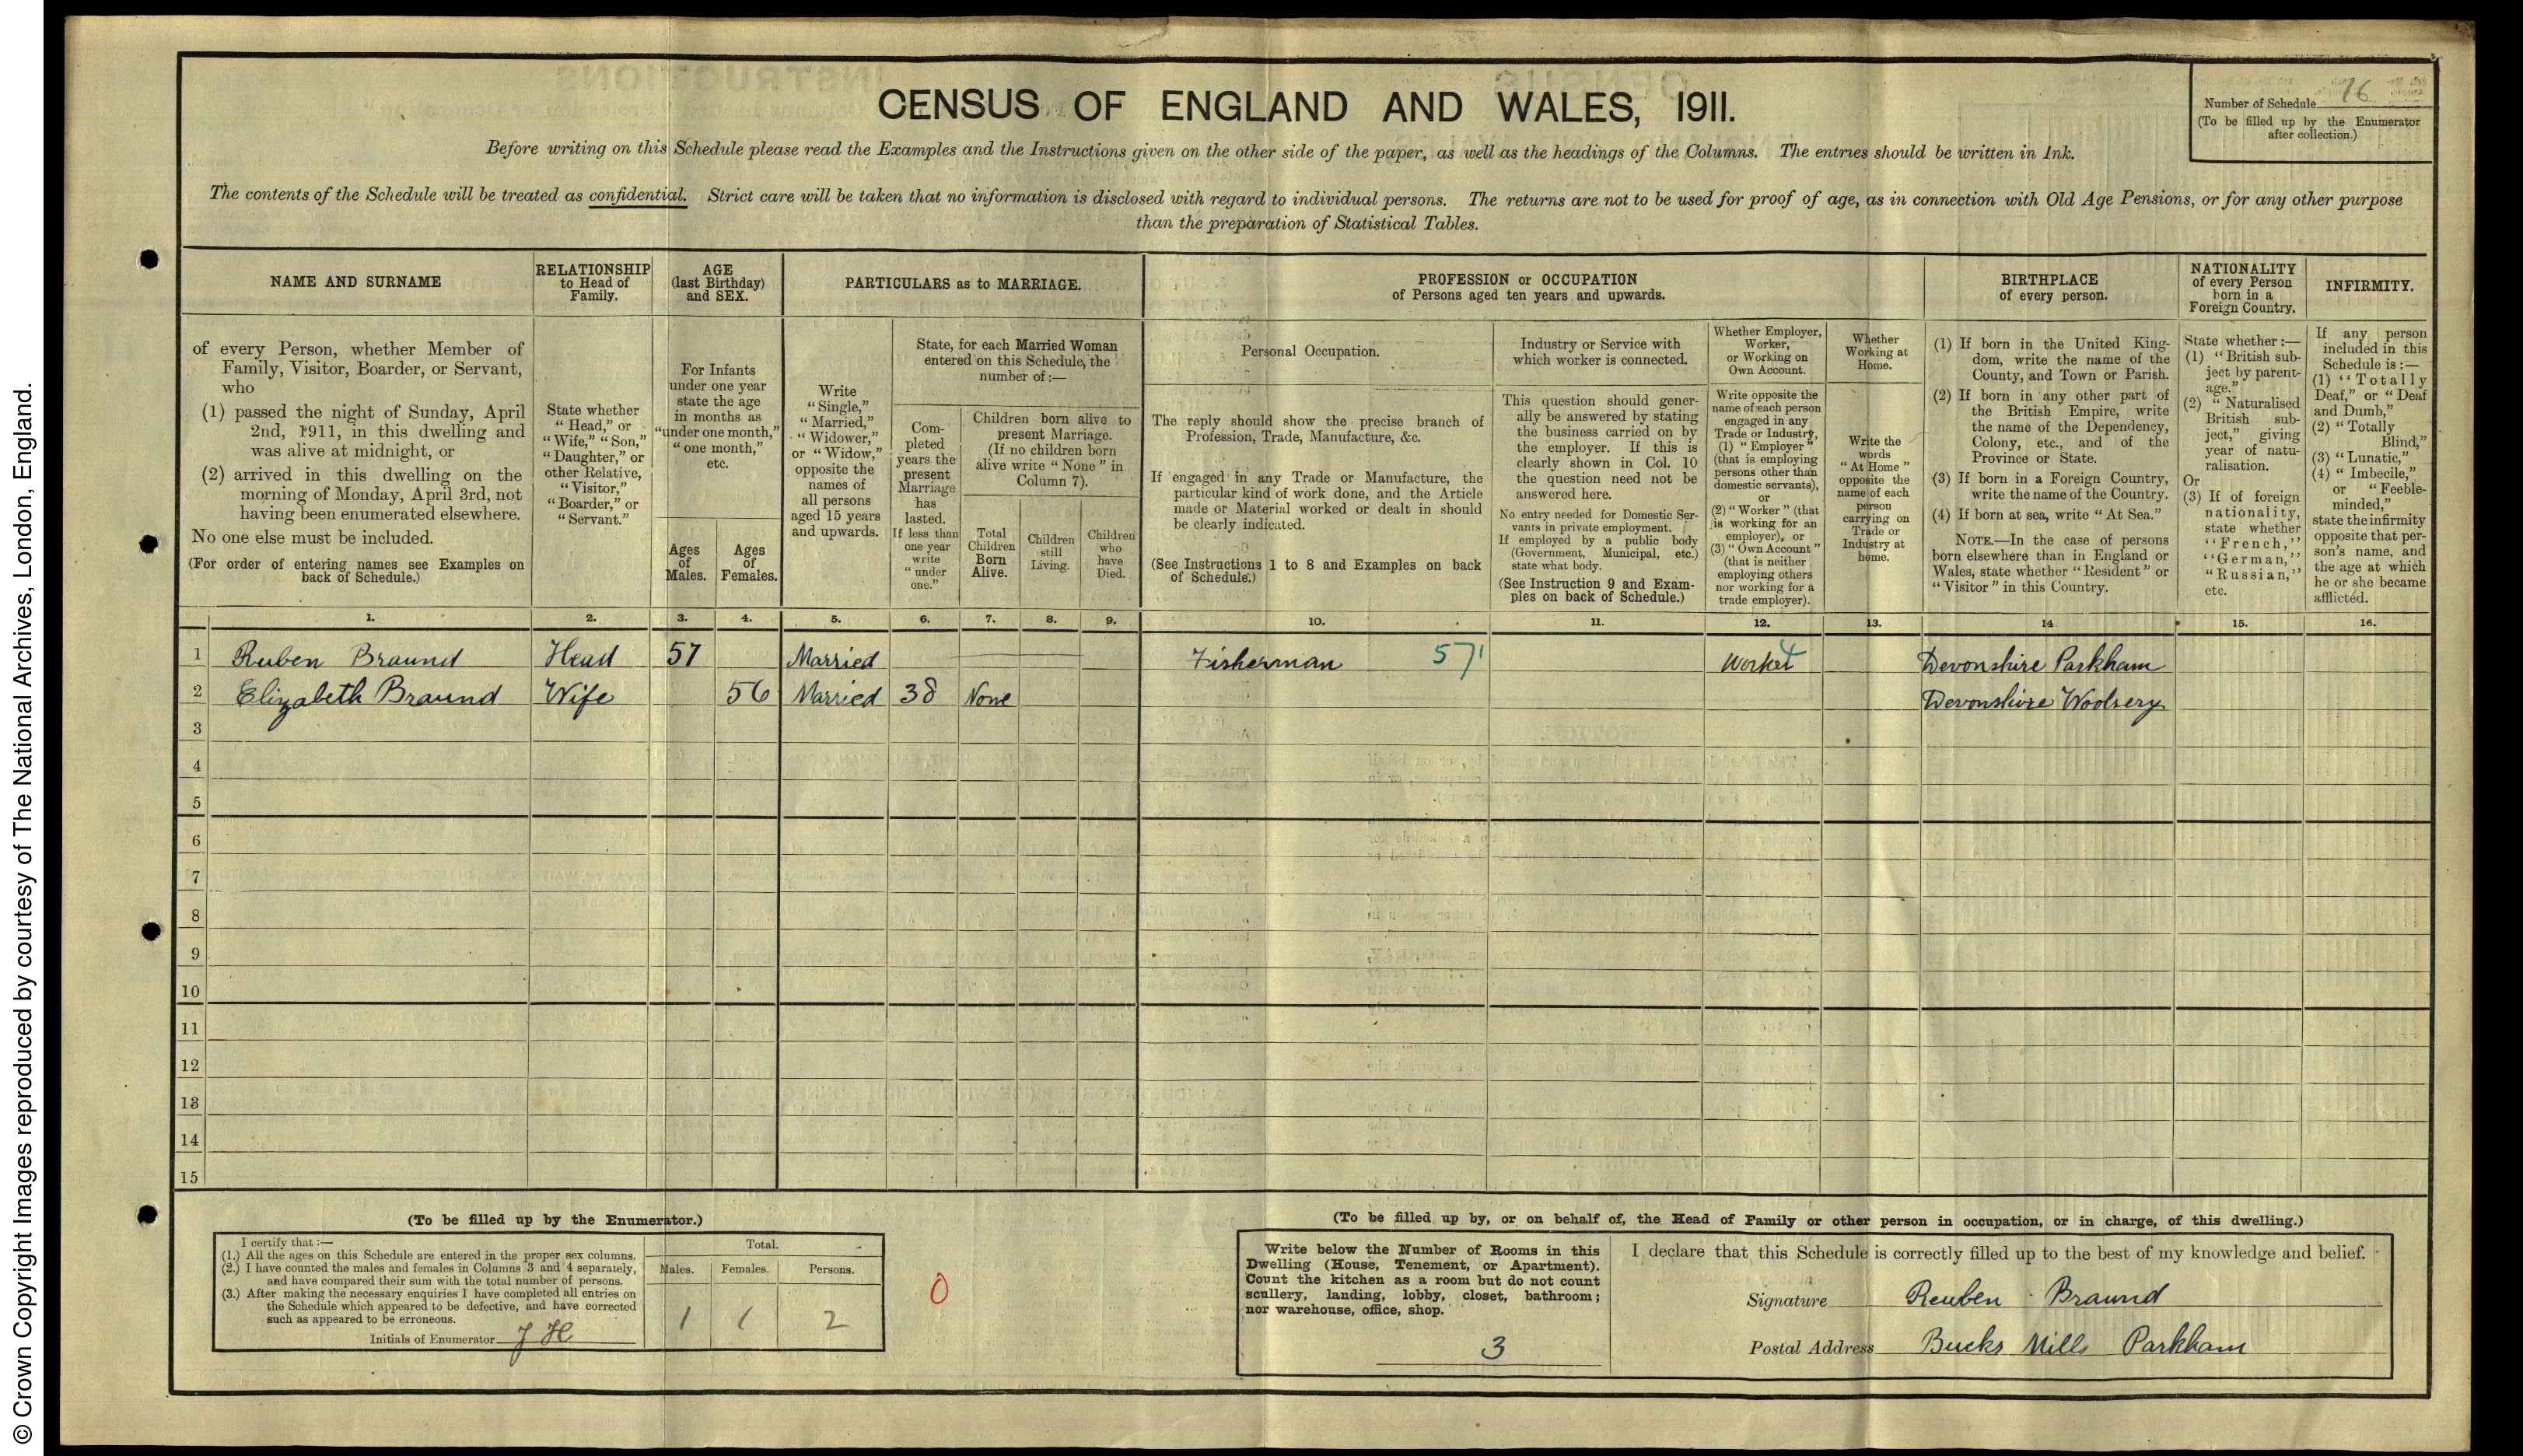 CENSUS OF ENGLAND AND WALES, 1911.
Number of Schedule 16
(To be filled up by the Enumerator
after collection.)
Before writing on this Schedule please read the Examples and the Instructions given on the other side of the paper, as well as the headings of the Columns. The entries should be written in Ink.
The contents of the Schedule will be treated as confidential. Strict care will be taken that no information is disclosed with regard to individual persons. The returns are not to be used for proof of age, as in connection with Old Age Pensions, or for any other purpose
than the preparation of Statistical Tables.
NAME AND SURNAME
of every Person, whether Member of
Family, Visitor, Boarder, or Servant,
who
(1) passed the night of Sunday, April
2nd, 1911, in this dwelling and
was alive at midnight, or
(2) arrived in this dwelling on the
morning of Monday, April 3rd, not
having been enumerated elsewhere.
No one else must be included.
(For order of entering names see Examples on
back of Schedule.)
RELATIONSHIP
to Head of
Family.
State whether
"Head," or
"Wife," "Son,"
"Daughter," or
other Relative,
"Visitor,"
"Boarder," or
"Servant."
AGE
(last Birthday)
and SEX.
For Infants
under one year
state the age
in months as
"under one month,"
"one month,"
etc.
Ages
of
Males.
Ages
of
Females.
PARTICULARS as to MARRIAGE.
Write
"Single,"
"Married,"
"Widower,"
or "Widow,"
opposite the
names of
all persons
aged 15 years
and upwards.
State, for each Married Woman
entered on this Schedule, the
number of :—
Com-
pleted
years the
present
Marriage
has
lasted.
If less than
one year
write
"under
one."
Children born alive to
present Marriage.
(If no children born
alive write "None" in
Column 7).
Total
Children
Born
Alive.
Children
still
Living.
Children
who
have
Died.
PROFESSION or OCCUPATION
of Persons aged ten years and upwards.
Personal Occupation.
The reply should show the precise branch of
Profession, Trade, Manufacture, &c.
If engaged in any Trade or Manufacture, the
particular kind of work done, and the Article
made or Material worked or dealt in should
be clearly indicated.
(See Instructions 1 to 8 and Examples on back
of Schedule.)
Industry or Service with
which worker is connected.
This question should gener-
ally be answered by stating
the business carried on by
the employer. If this is
clearly shown in Col. 10
the question need not be
answered here.
No entry needed for Domestic Ser-
vants in private employment.
If employed by a public body
(Government, Municipal, etc.)
state what body.
(See Instruction 9 and Exam-
ples on back of Schedule.)
Whether Employer,
Worker,
or Working on
Own Account.
Write opposite the
name of each person
engaged in any
Trade or Industry,
(1) "Employer"
(that is employing
persons other than
domestic servants),
or
(2) "Worker" (that
is working for an
employer), or
(3) "Own Account"
(that is neither
employing others
nor working for a
trade employer).
Whether
Working at
Home.
Write the
words
"At Home"
opposite the
name of each
person
carrying on
Trade or
Industry at
home.
BIRTHPLACE
of every person.
(1) If born in the United King-
dom, write the name of the
County, and Town or Parish.
(2) If born in any other part of
the British Empire, write
the name of the Dependency,
Colony, etc., and of the
Province or State.
(3) If born in a Foreign Country,
write the name of the Country.
(4) If born at sea, write "At Sea."
NOTE.—In the case of persons
born elsewhere than in England or
Wales, state whether "Resident" or
"Visitor" in this Country.
NATIONALITY
of every Person
born in a
Foreign Country.
State whether :—
(1) "British sub-
ject by parent-
age."
(2) "Naturalised
British sub-
ject," giving
year of natu-
ralisation.
Or
(3) If of foreign
nationality,
state whether
"French,"
"German,"
"Russian,"
etc.
INFIRMITY.
If any person
included in this
Schedule is :—
(1) "Totally
Deaf," or "Deaf
and Dumb,"
(2) "Totally
Blind,"
(3) "Lunatic,"
(4) "Imbecile,"
or "Feeble-
minded,"
state the infirmity
opposite that per-
son's name, and
the age at which
he or she became
afflicted.
1. 2. 3. 4. 5. 6. 7. 8. 9. 10. 11. 12. 13. 14 15. 16.
1 Reuben Braund Head 57 Married Fisherman 571 Worker 4 Devonshire Parkham
2 Elizabeth Braund Wife 56 Married 38 None Devonshire Woolsery
3
4
5
6
7
8
9
10
11
12
13
14
15
(To be filled up by the Enumerator.)
I certify that :—
(1.) All the ages on this Schedule are entered in the proper sex columns.
(2.) I have counted the males and females in Columns 3 and 4 separately,
and have compared their sum with the total number of persons.
(3.) After making the necessary enquiries I have completed all entries on
the Schedule which appeared to be defective, and have corrected
such as appeared to be erroneous.
Initials of Enumerator J H
Total.
Males. Females. Persons.
1 1 2
0
(To be filled up by, or on behalf of, the Head of Family or other person in occupation, or in charge, of this dwelling.)
Write below the Number of Rooms in this
Dwelling (House, Tenement, or Apartment).
Count the kitchen as a room but do not count
scullery, landing, lobby, closet, bathroom;
nor warehouse, office, shop.
3
I declare that this Schedule is correctly filled up to the best of my knowledge and belief.
Signature Reuben Braund
Postal Address Bucks Mills Parkham
© Crown Copyright Images reproduced by courtesy of The National Archives, London, England.